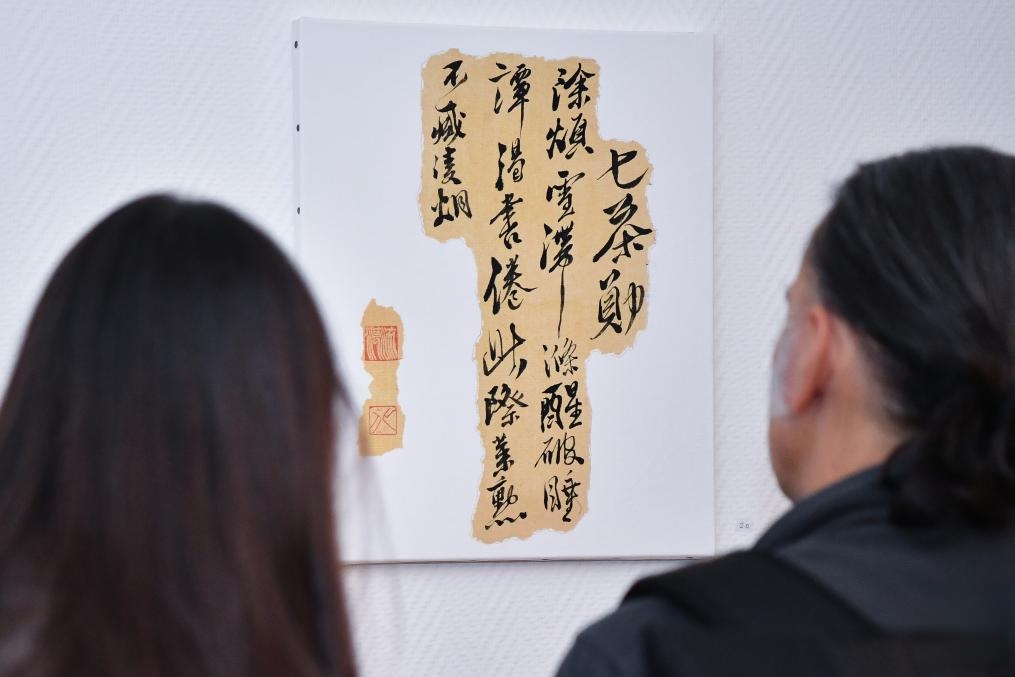 七茶勛
除煩雪滯滌醒破睡
譚渴書倦此際策勲
不減凌烟